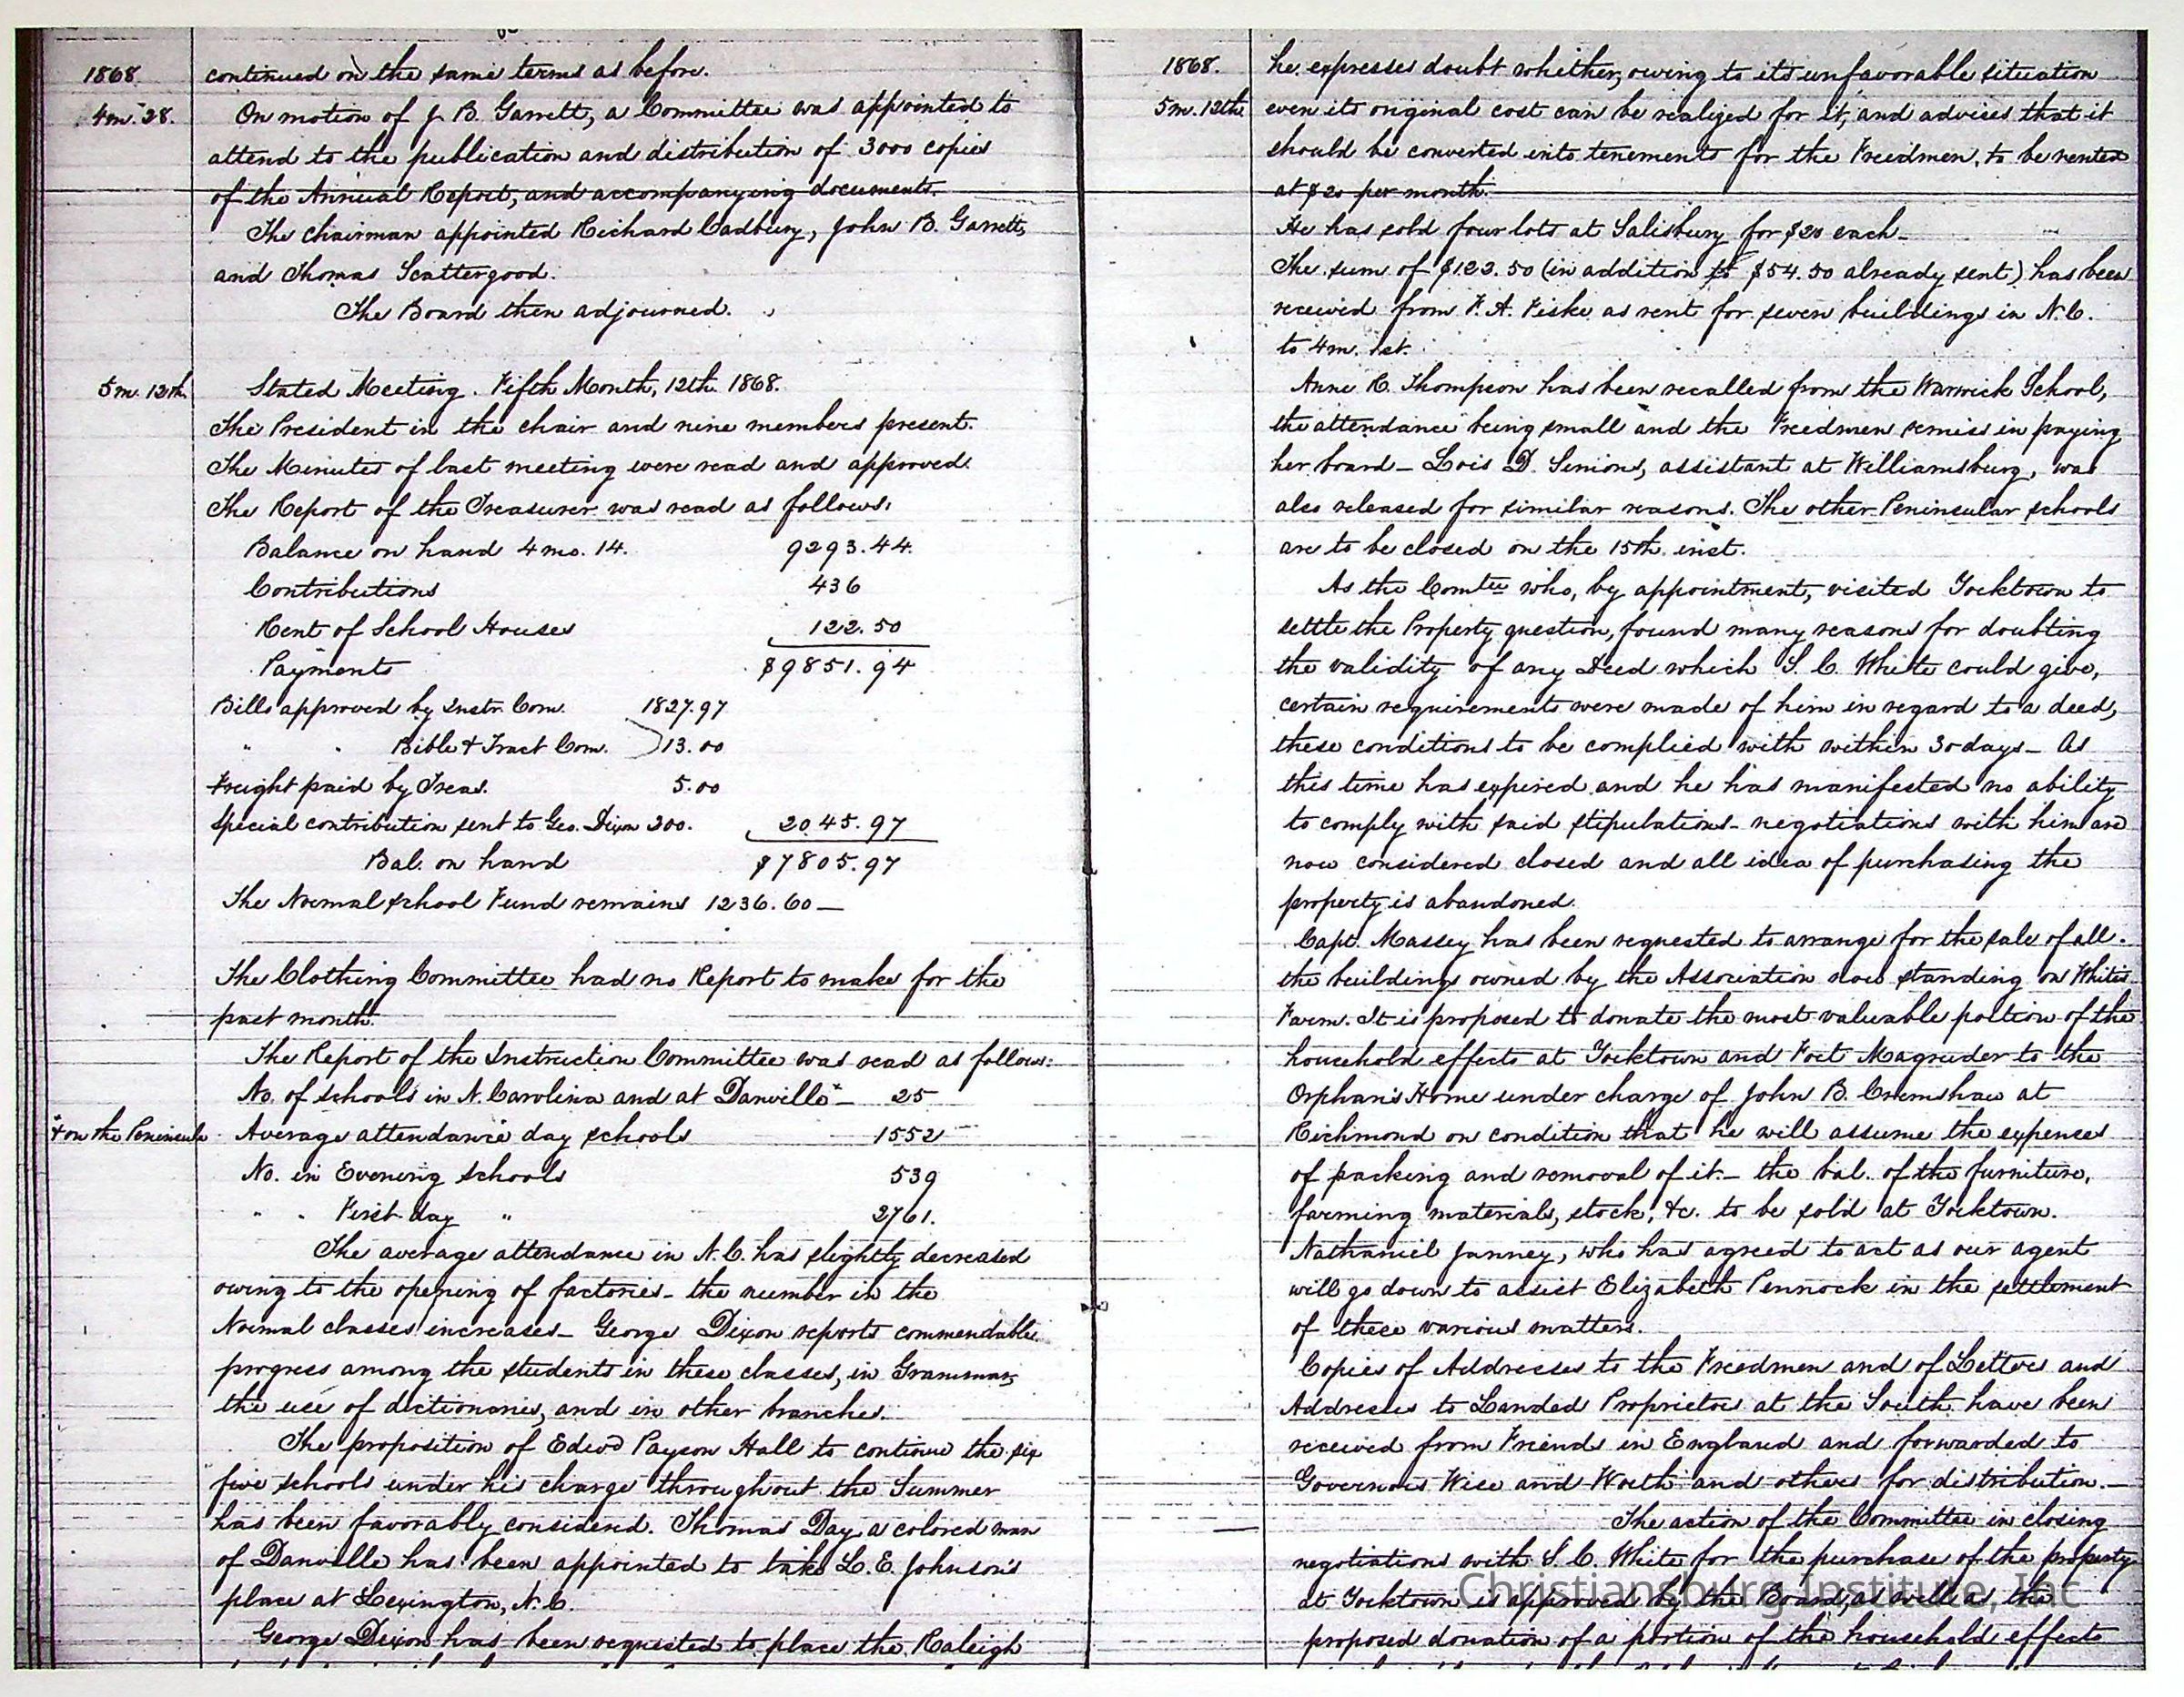 1868.
continued on the same terms as before.
4m. 28.
On motion of J. B. Garrett, a Committee was appointed to
attend to the publication and distribution of 3000 copies
of the Annual Report, and accompanying documents.
The chairman appointed Richard Cadbury, John B. Garrett,
and Thomas Scattergood.
The Board then adjourned.
5m. 12th.
Stated Meeting. Fifth Month, 12th. 1868.
The President in the chair and nine members present.
The Minutes of last meeting were read and approved.
The Report of the Treasurer was read as follows:
Balance on hand 4 mo. 14. 9293.44
Contributions 436
Rent of School Houses 122.50
Payments $9851.94
Bills approved by Instr. Com. 1827.97
" " Bible & Tract Com. 13.00
Freight paid by Treas. 5.00
Special contribution sent to Geo. Dixon 200. 2045.97
Bal. on hand $7805.97
The Normal School Fund remains 1236.60 —
The Clothing Committee had no Report to make for the
past month.
The Report of the Instruction Committee was read as follows:
No. of schools in N. Carolina and at Danville* — 25
*& on the Peninsula
Average attendance day schools 1552
No. in Evening schools 539
" " First-day " 2761.
The average attendance in N.C. has slightly decreased
owing to the opening of factories - the number in the
Normal classes increases - George Dixon reports commendable
progress among the students in these classes, in Grammar,
the use of dictionaries, and in other branches.
The proposition of Edwd Payson Hall to continue the six
five schools under his charge throughout the Summer
has been favorably considered. Thomas Day a colored man
of Danville has been appointed to take L. E. Johnson's
place at Lexington, N.C.
George Dixon has been requested to place the Raleigh
1868.
he expresses doubt whether, owing to its unfavorable situation
5m. 12th.
even its original cost can be realized for it, and advises that it
should be converted into tenements for the Freedmen, to be rented
at $20 per month.
He has sold four lots at Salisbury for $20 each -
The sum of $123.50 (in addition to $54.50 already sent) has been
received from F. A. Fiske as rent for seven buildings in N.C.
to 4m. 1st.
Anne R. Thompson has been recalled from the Warwick School,
the attendance being small and the Freedmen remiss in paying
her board - Lois D. Simons, assistant at Williamsburg, was
also released for similar reasons. The other Peninsular schools
are to be closed on the 15th. inst.
As the Comtee who, by appointment, visited Yorktown to
settle the Property question, found many reasons for doubting
the validity of any Deed which S. C. White could give,
certain requirements were made of him in regard to a deed,
these conditions to be complied with within 30 days - As
this time has expired and he has manifested no ability
to comply with said stipulations - negotiations with him are
now considered closed and all idea of purchasing the
property is abandoned.
Capt. Massey has been requested to arrange for the sale of all
the buildings owned by the Association now standing on White's
Farm. It is proposed to donate the most valuable portion of the
household effects at Yorktown and Fort Magruder to the
Orphan's Home under charge of John B. Crenshaw at
Richmond on condition that he will assume the expenses
of packing and removal of it. - the bal. of the furniture,
farming materials, stock, &c. to be sold at Yorktown.
Nathaniel Janney, who has agreed to act as our agent
will go down to assist Elizabeth Pennock in the settlement
of these various matters.
Copies of Addresses to the Freedmen and of Letters and
Addresses to Landed Proprietors at the South have been
received from Friends in England and forwarded to
Governors Wise and Worth and others for distribution. —
The action of the Committee in closing
negotiations with S. C. White for the purchase of the property
at Yorktown is approved by the Board, as well as the
proposed donation of a portion of the household effects
Christiansburg Institute, Inc